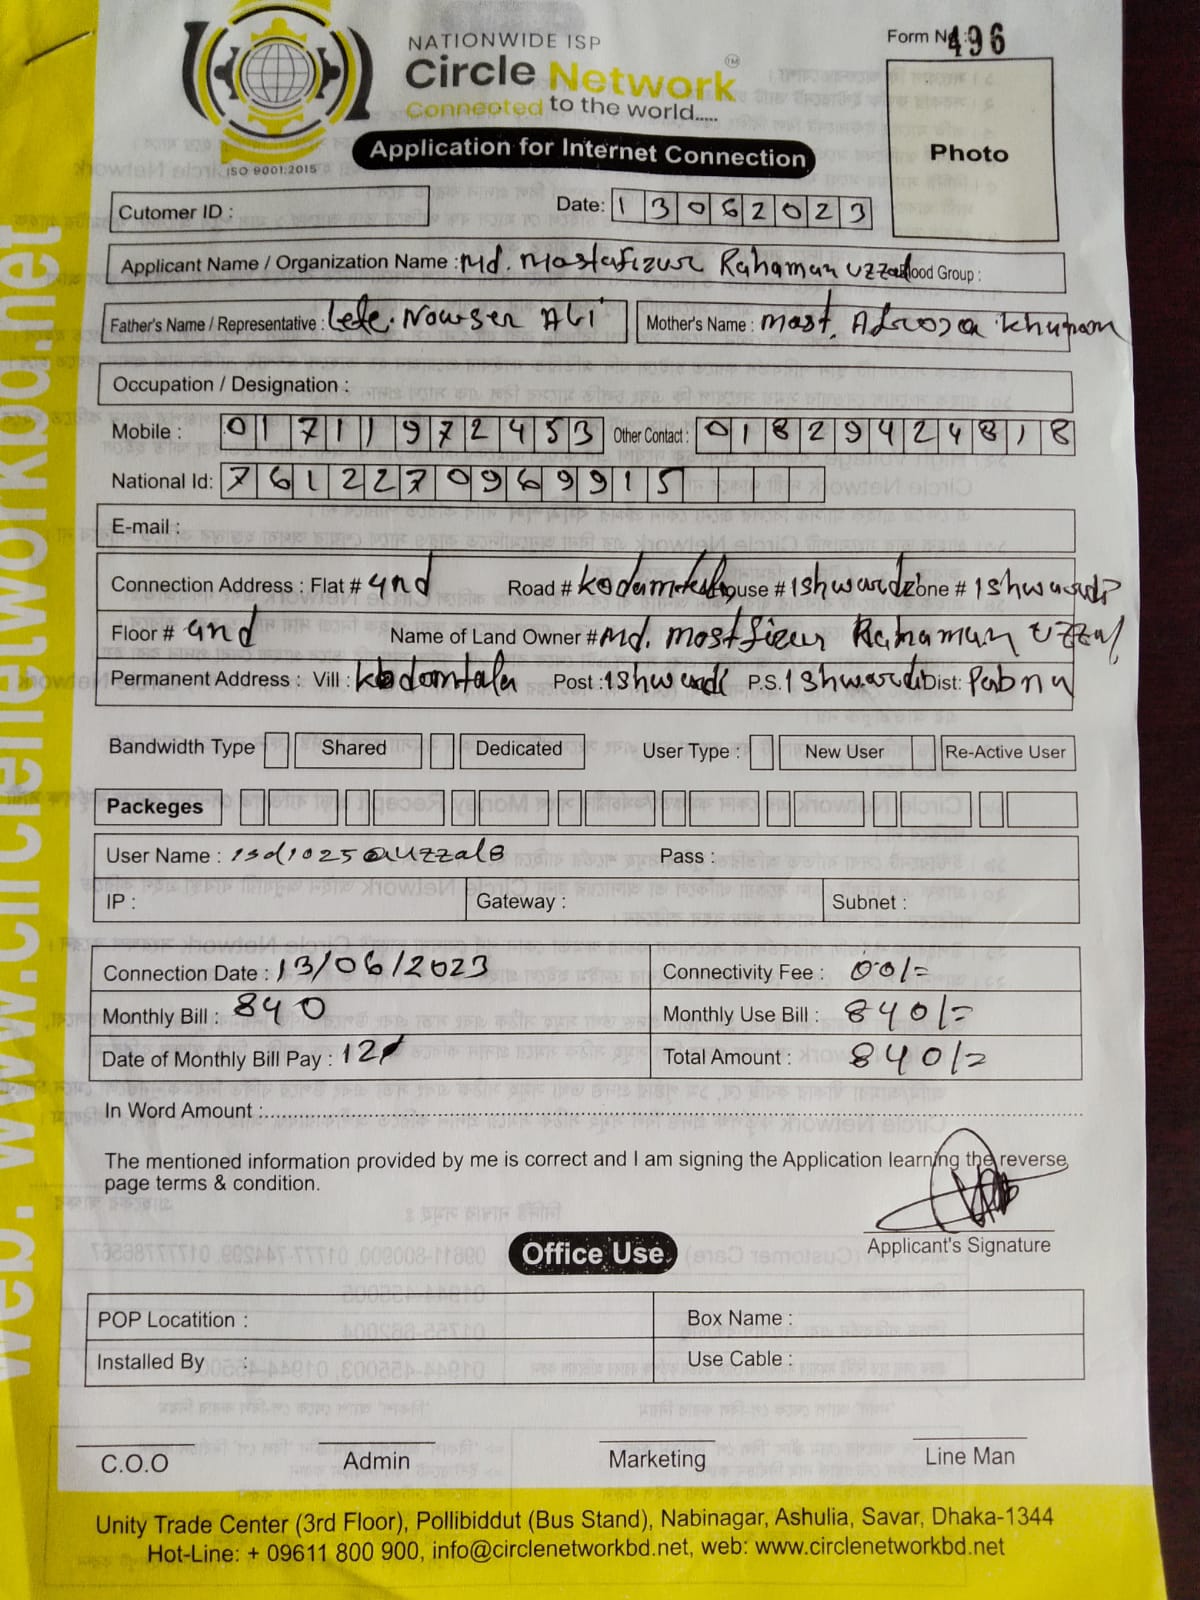 NATIONWIDE ISP
Circle Network TM
Connected to the world.....
Form No: 496
Photo
ISO 9001:2015
Application for Internet Connection
Cutomer ID :
Date: 13062023
Applicant Name / Organization Name : Md. Mostafizur Rahaman Uzzal
Blood Group :
Father's Name / Representative : Lete. Nowser Ali
Mother's Name : Most.
Occupation / Designation :
Mobile : 01711972453 Other Contact : 01829424818
National Id: 7612270969915
E-mail :
Connection Address : Flat # 4nd Road # Kodamtala House # Ishwardi Zone # Ishwardi
Floor # 4nd Name of Land Owner # Md. Mostfizur Rahaman Uzzal
Permanent Address : Vill : Kodamtala Post : Ishwardi P.S. Ishwardi Dist: Pabna
Bandwidth Type Shared Dedicated User Type : New User Re-Active User
Packeges
User Name : isd1025@uzzalB Pass :
IP : Gateway : Subnet :
Connection Date : 13/06/2023 Connectivity Fee : 00/=
Monthly Bill : 840 Monthly Use Bill : 840/=
Date of Monthly Bill Pay : 12 Total Amount : 840/=
In Word Amount :
The mentioned information provided by me is correct and I am signing the Application learning the reverse
page terms & condition.
Applicant's Signature
Office Use.
POP Locatition : Box Name :
Installed By : Use Cable :
C.O.O Admin Marketing Line Man
Unity Trade Center (3rd Floor), Pollibiddut (Bus Stand), Nabinagar, Ashulia, Savar, Dhaka-1344
Hot-Line: + 09611 800 900, info@circlenetworkbd.net, web: www.circlenetworkbd.net
web: www.circlenetworkbd.net